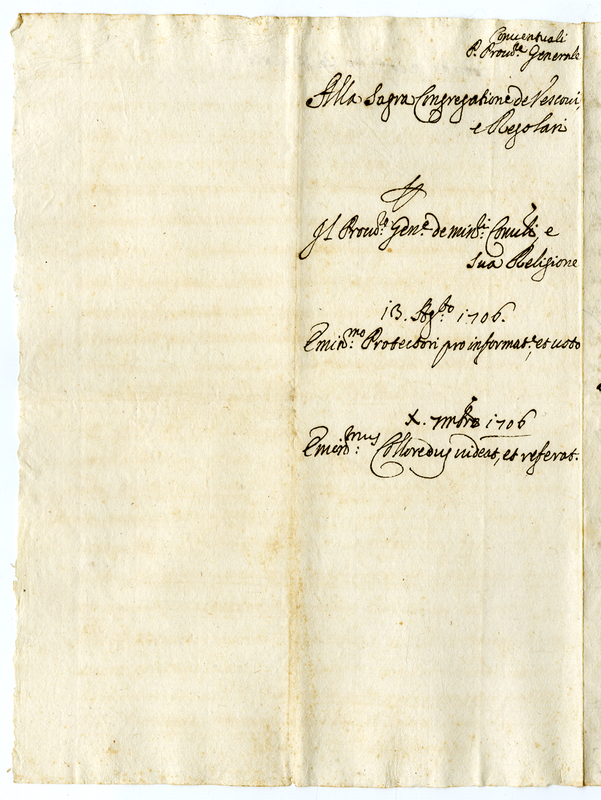 Conuentuali
P. Procu.re Generale
Alla Sagra Congregatione de Vescoui,
e Regolari
Il Procu.re Gen.le de min.ri Conu.li, e
sua Religione
13. Ag.to 1706.
Emin.mo Protectori pro informat.e, et uoto
X. 7mbre 1706
Emin.mus Colloredus uideat, et referat.